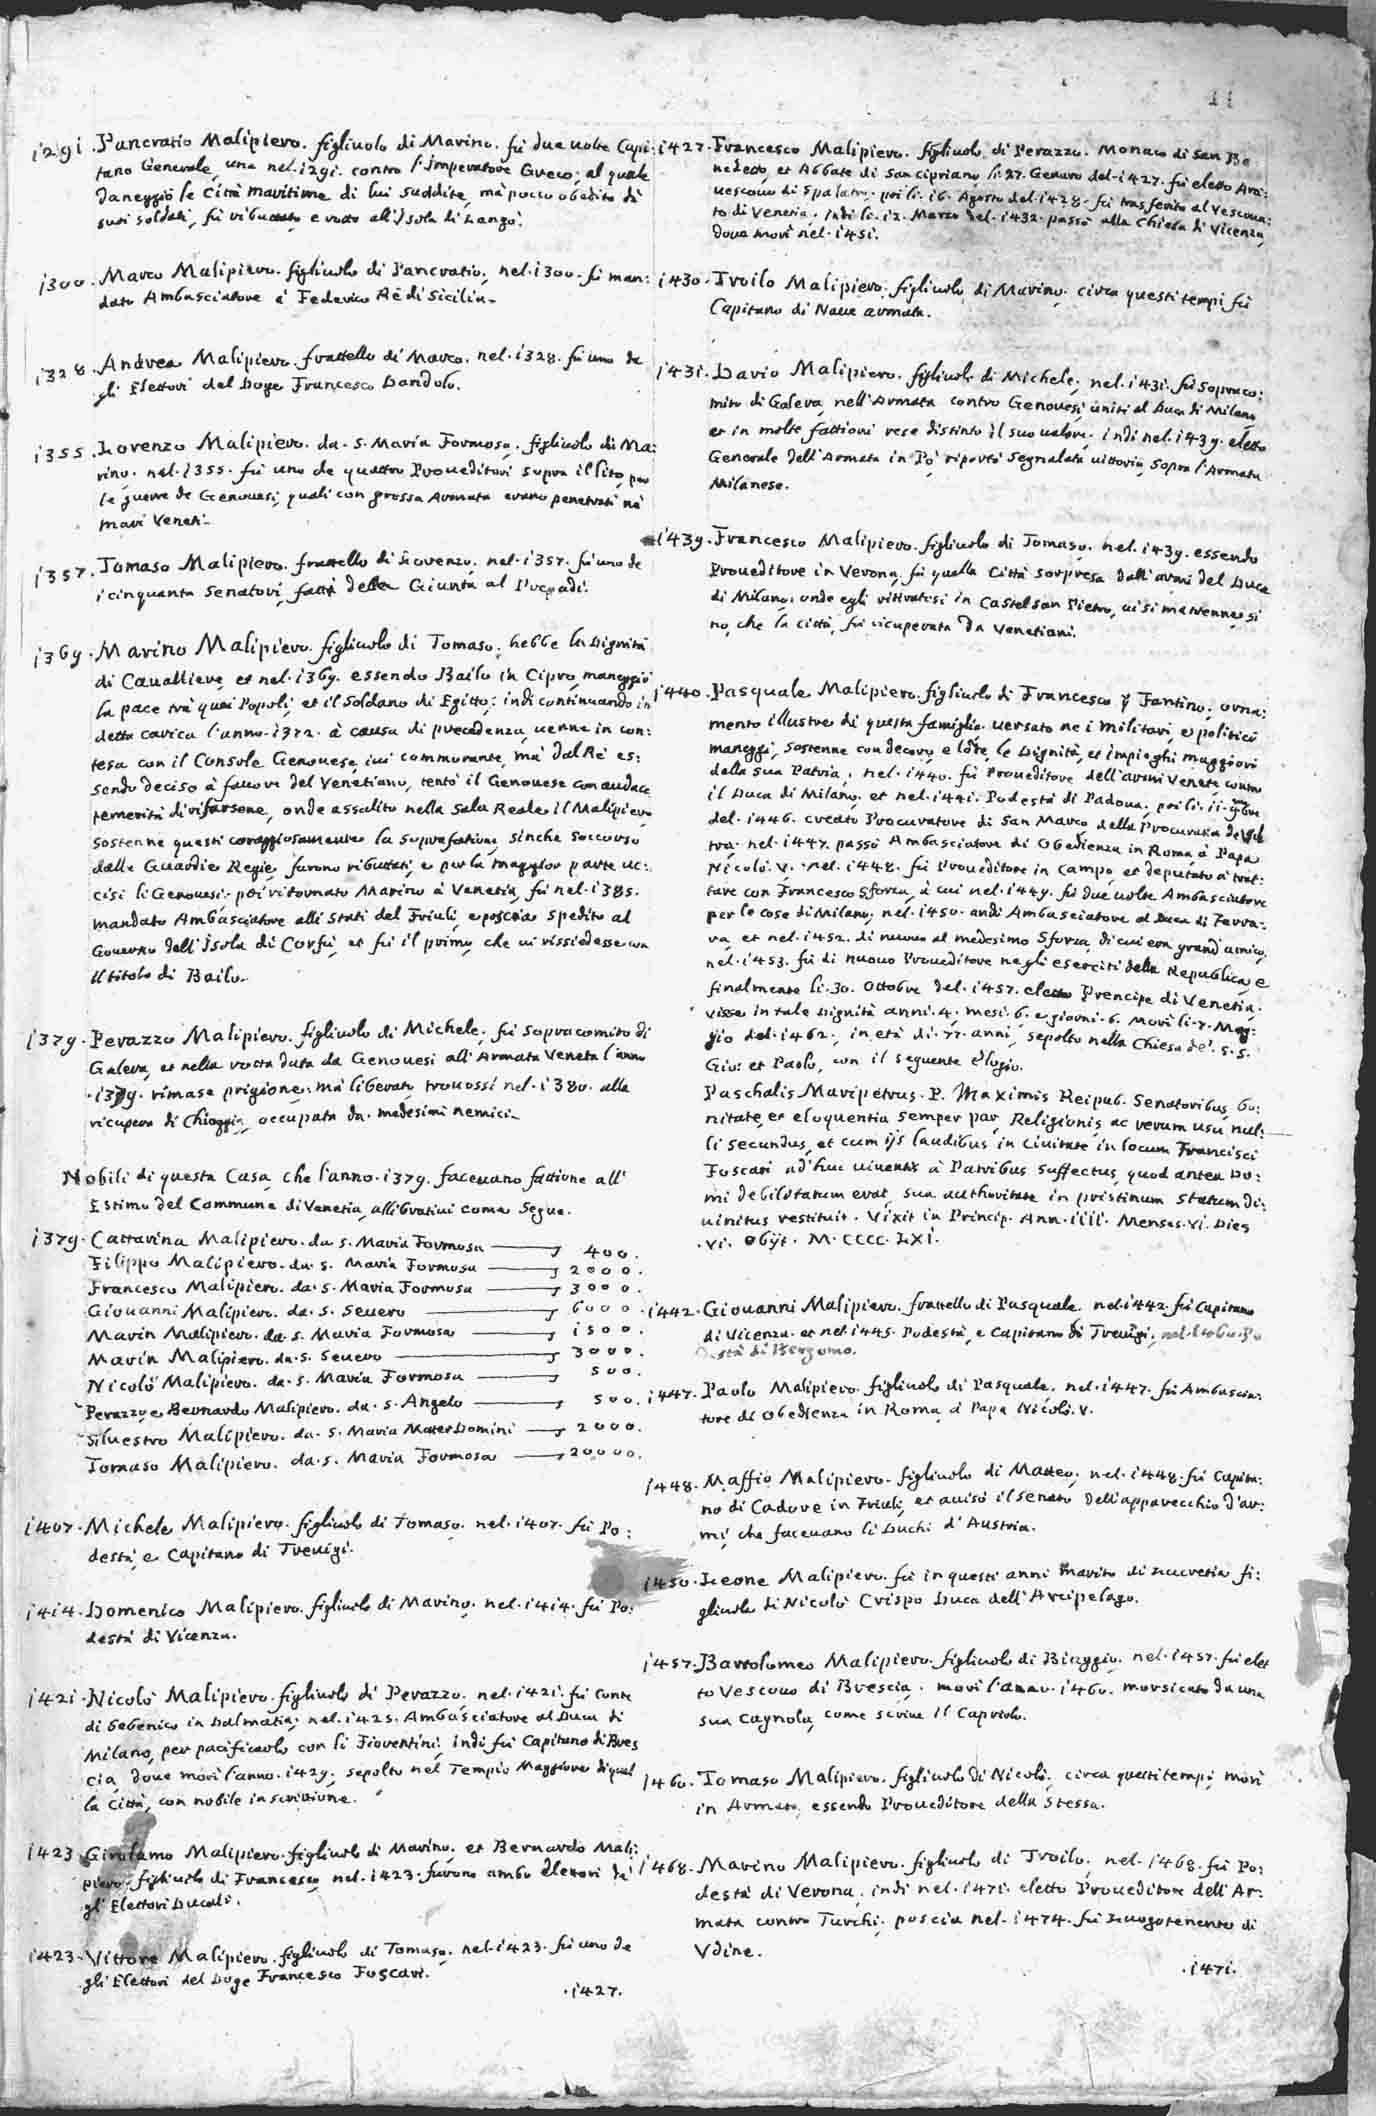 11
1291. Pancratio Malipiero. figliuolo di Marino. fù due uolte Capi:
tano Generale, una nel. 1291. contro l'Imperatore Greco; al quale
daneggiò le Città maritime di lui suddite, mà poco obedito dà
suoi soldati, fù ributtato, e rotto all'Isola di Lango.
1300. Marco Malipiero. figliuolo di Pancratio; nel. 1300. fù man:
dato Ambasciatore à Federico Rè di Sicilia.
1328. Andrea Malipiero. frattello di Marco. nel. 1328. fù uno de
gli Elettori del Doge Francesco Dandolo.
1355. Lorenzo Malipiero. da. S. Maria Formosa, figliuolo di Ma:
rino. nel. 1355. fù uno de quattro Proueditori sopra il lito, per
le guerre de Genouesi, quali con grossa Armata erano penetrati nè
mari Veneti.
1357. Tomaso Malipiero. frattello di Lorenzo. nel. 1357. fù uno de
i cinquanta Senatori, fatti della Giunta al Pregadi.
1369. Marino Malipiero. figliuolo di Tomaso; hebbe la Dignità
di Cauallier, et nel. 1369. essendo Bailo in Cipro, maneggiò
la pace trà quei Popoli, et il Soldano di Egitto: indi continuando in
detta carica l'anno. 1372. à causa di precedenza, uenne in con:
tesa con il Console Genouese, iui commorante, mà dal Rè es:
sendo deciso à fauore del Venetiano, tentò il Genouese con audace
temerità di rifarsene, onde assalito nella Sala Reale il Malipiero
sostenne questi coraggiosamente la soprefatione, sinche soccorso
dalle Guardie Regie, furono ributtati, e per la maggior parte uc:
cisi li Genouesi. poi ritornato Marino à Venetia, fù nel. 1385.
mandato Ambasciatore alli Stati del Friuli, e poscia spedito al
Gouerno dell'Isola di Corfù, et fù il primo, che ui rissiedesse con
il titolo di Bailo.
1379. Perazzo Malipiero. figliuolo di Michele; fù sopracomito di
Galera, et nella rotta data da Genouesi all'Armata Veneta l'anno
. 1379. rimase prigione; mà liberato trouossi nel. 1380. alla
ricupera di Chioggia, occupata da medesimi nemici.
Nobili di questa Casa, che l'anno. 1379. faceuano fattione all'
Estimo del Commune di Venetia, allibrati come segue.
1379. Cattarina Malipiero. da S. Maria Formosa 400.
Filippo Malipiero. da. S. Maria Formosa 2000.
Francesco Malipiero. da. S. Maria Formosa 3000.
Giouanni Malipiero. da. S. Seuero 6000.
Marin Malipiero. da. S. Maria Formosa 1500.
Marin Malipiero. da. S. Seuero 3000.
Nicolò Malipiero. da. S. Maria Formosa 500.
Perazzo e Bernardo Malipiero. da. S. Angelo 500.
Siluestro Malipiero. da. S. Maria Mater Domini 2000.
Tomaso Malipiero. da. S. Maria Formosa 20000.
1407. Michele Malipiero. figliuolo di Tomaso. nel. 1407. fù Po:
destà, e Capitano di Treuigi.
1414. Domenico Malipiero. figliuolo di Marino. nel. 1414. fù Po:
destà di Vicenza.
1421. Nicolò Malipiero. figliuolo di Perazzo. nel. 1421. fù Conte
di Sebenico in Dalmatia; nel. 1425. Ambasciatore al Duca di
Milano, per pacificarlo con li Fiorentini; indi fù Capitano di Bres
cia, doue morì l'anno. 1429. sepolto nel Tempio Maggiore di quel
la Città, con nobile inscrittione.
1423. Girolamo Malipiero. figliuolo di Marino. et Bernardo Mali:
piero. figliuolo di Francesco, nel. 1423. furono ambo Elettori de
gl'Elettori Ducali.
1423. Vittore Malipiero. figliuolo di Tomaso. nel. 1423. fù uno de
gli Elettori del Doge Francesco Foscari.
. 1427.
1427. Francesco Malipiero. figliuolo di Perazzo. Monaco di San Be
nedetto, et Abbate di San Cipriano, li. 27. Genaro del. 1427. fù eletto Arci:
uescouo di Spalatro. poi li. 16. Agosto del. 1428. fù trasferito al Vescoua:
to di Venetia. indi li. 12. Marzo del. 1432. passò alla Chiesa di Vicenza,
doue morì nel. 1451.
1430. Troilo Malipiero. figliuolo di Marino. circa questi tempi fù
Capitano di Naue armata.
1431. Dario Malipiero. figliuolo di Michele; nel. 1431. fù sopraco:
mito di Galera, nell'Armata contro Genouesi, uniti al Duca di Milano
et in molte fattioni rese distinto il suo ualore. indi nel. 1439. eletto
Generale dell'Armata in Pò, riportò segnalata uittoria, sopra l'Armata
Milanese.
1439. Francesco Malipiero. figliuolo di Tomaso. nel. 1439. essendo
Proueditore in Verona, fù quella Città sorpresa dall'armi del Duca
di Milano. onde egli ritiratosi in Castel San Pietro, ui si mantenne, si
no, che la città, fù ricuperata da Venetiani.
1440. Pasquale Malipiero. figliuolo di Francesco q. Fantino; orna:
mento illustre di questa famiglia. uersato ne i militari, e politici
maneggi, sostenne con decoro, e lode, le Dignità, et impieghi maggiori
della sua Patria. nel. 1440. fù Proueditore dell'armi Venete contro
il Duca di Milano, et nel. 1441. Podestà di Padoua, poi li. 11.
del. 1446. creato Procuratore di San Marco della Procuratia de
tra. nel. 1447. passò Ambasciatore di Obedienza in Roma à Papa
Nicolò. V. nel. 1448. fù Proueditore in Campo, et deputato à trat:
tare con Francesco Sforza, à cui nel. 1449. fù due uolte Ambasciatore
per le cose di Milano. nel. 1450. andò Ambasciatore al Duca di Ferra:
ra, et nel. 1452. di nuouo al medesimo Sforza, di cui era grand'amico.
nel. 1453. fù di nuouo Proueditore negli eserciti della Republica, e
finalmente li. 30. Ottobre del. 1457. eletto Prencipe di Venetia.
Visse in tale Dignità anni. 4. mesi. 6. e giorni. 6. Morì li. 7. Mag:
gio del. 1462. in età di. 77. anni, sepolto nella Chiesa de'. S.S.
Gio: et Paolo, con il seguente elogio.
Paschalis Maripetrus. P. Maximis Reipub. Senatoribus, bo:
nitate, et eloquentia semper par, Religionis, ac rerum usu nul:
li secundus, et cum ijs laudibus in Ciuitate in locum Francisci
Foscari ad'huc uiuentis à Patribus suffectus, quod antea Do:
mi debilitatum erat, sua authoritate in pristinum statum di:
uinitus restituit. Vixit in Princip. Ann. IIII. Menses. VI. Dies
. VI. Obijt. M. CCCC. LXI.
1442. Giouanni Malipiero. frattello di Pasquale. nel. 1442. fù Capitano
di Vicenza. et nel. 1445. Podestà, e Capitano di Treuigi; nel. 1460. Po
destà di Bergamo.
1447. Paolo Malipiero. figliuolo di Pasquale. nel. 1447. fù Ambascia:
tore di Obedienza in Roma à Papa Nicolò. V.
1448. Maffio Malipiero. figliuolo di Matteo; nel. 1448. fù Capita:
no di Cadore in Friuli, et auisò il Senato dell'apparecchio d'ar:
mi, che faceuano li Duchi d'Austria.
1450. Leone Malipiero. fù in questi anni marito di Lucretia fi:
gliuola di Nicolò Crispo Duca dell'Arcipelago.
1457. Bartolomeo Malipiero. figliuolo di Biaggio. nel. 1457. fù elet
to Vescouo di Brescia. morì l'anno. 1460. morsicato da una
sua Cagnola, come scriue il Capriolo.
1460. Tomaso Malipiero. figliuolo di Nicolò; circa questi tempi, morì
in Armata, essendo Proueditore della stessa.
1468. Marino Malipiero. figliuolo di Troilo. nel. 1468. fù Po:
destà di Verona, indi nel. 1471. eletto Proueditore dell'Ar:
mata contro Turchi; poscia nel. 1474. fù Luogotenente di
Vdine.
. 1471.